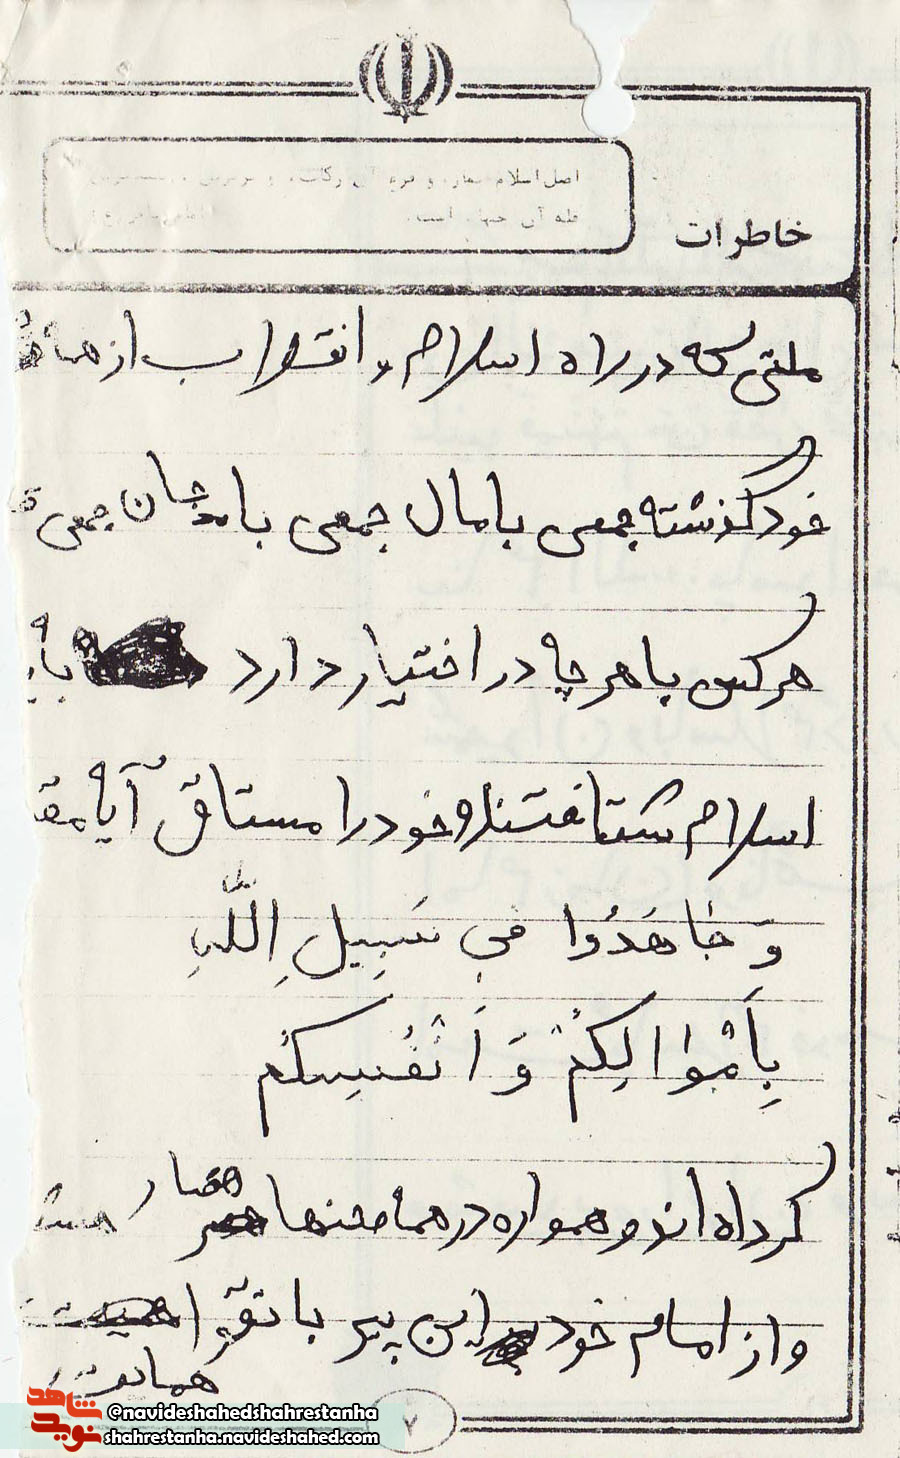 اصل اسلام
آن جهاد است
خاطرات
ملتی که در راه اسلام و انقلاب از همه
خود گذشته جمعی با مال جمعی با جان جمعی
هر کس با هر چه در اختیار دارد
اسلام شتافتند و خود را مستاق آیه
وَ جٰاهَدُوا فی سَبِیلِ اللّهِ
بِاَمْوٰالِکُمْ وَ اَنْفُسِکُم
کرداه اند و همواره در همه صحنها حضار
و از امام خود این پیر با تقوا
حمایت
۷
شاهد
نوید
©navideshahedshahrestanha
shahrestanha.navideshahed.com